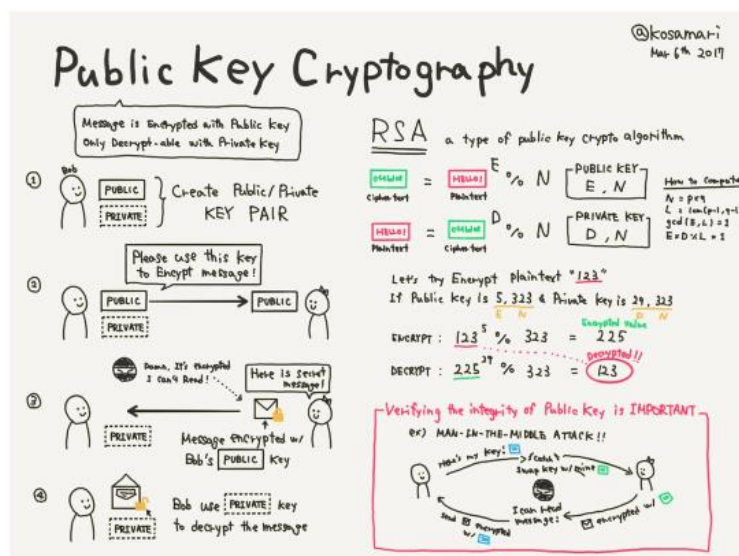 @kosamari
Mar 6th 2017
Public Key Cryptography
Message is Encrypted with Public Key
Only Decrypt-able with Private Key
①
Bob
PUBLIC
PRIVATE
Create Public/Private
KEY PAIR
②
Please use this key
to Encypt message!
PUBLIC
PUBLIC
PRIVATE
③
Damn, It's encrypted
I can't Read!
Here is secret
message!
PRIVATE
Message encrypted w/
Bob's PUBLIC Key
④
PRIVATE
Bob use PRIVATE key
to decrypt the message
RSA a type of public key crypto algorithm
= HELLO! E % N
Ciphertext
Plaintext
PUBLIC KEY
E, N
HELLO! = D % N
Plaintext
Ciphertext
PRIVATE KEY
D, N
How to Compute
N = p×q
L = lcm(p-1, q-1)
gcd(E, L) = 1
E×D%L = 1
Let's try Encrypt plaintext "123"
If Public Key is 5, 323 & Private Key is 29, 323
E N
D N
Encrypted Value
ENCRYPT : 123⁵ % 323 = 225
Decrypted!!
DECRYPT : 225²⁹ % 323 = 123
Verifying the integrity of Public Key is IMPORTANT
ex) MAN-IN-THE-MIDDLE ATTACK!!
Here's my key!
swap key w/ mine
I can read
message!
encrypted w/
send encrypted
w/